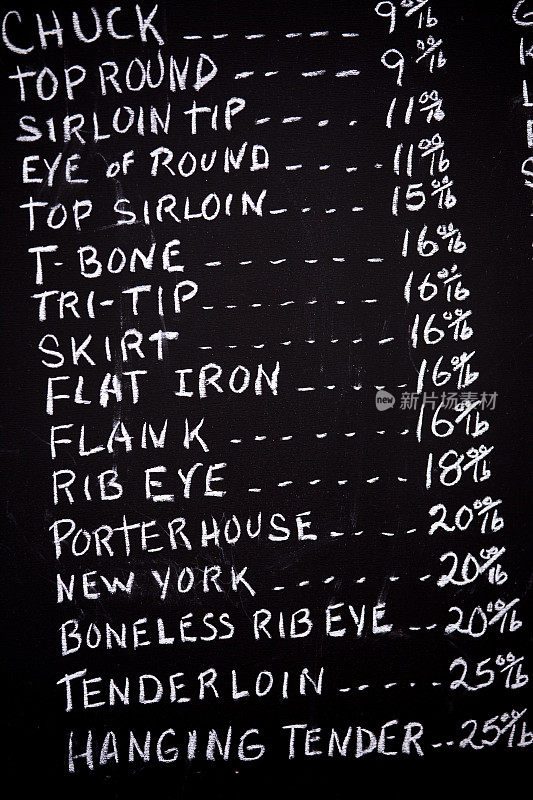 CHUCK ------- 9 00/lb
TOP ROUND -- -- -- 9 00/lb
SIRLOIN TIP ---- 11 00/lb
EYE of ROUND ---- 11 00/lb
TOP SIRLOIN ---- 15 00/lb
T-BONE ------ 16 00/lb
TRI-TIP ------- 16 00/lb
SKIRT ------- 16 00/lb
FLAT IRON ---- 16 00/lb
FLANK ------ 16 00/lb
RIB EYE ------ 18 00/lb
PORTERHOUSE ---- 20 00/lb
NEW YORK ------ 20 00/lb
BONELESS RIB EYE -- 20 00/lb
TENDERLOIN ----- 25 00/lb
HANGING TENDER -- 25 00/lb
new 新片场素材